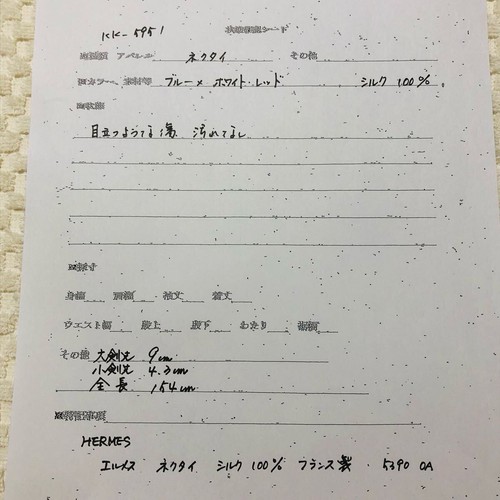 KK-5951 状態確認シート
アパレル ネクタイ その他
カラー、素材等 ブルー×ホワイト・レッド シルク 100%。
状態
目立つような傷 汚れてなし
採寸
身幅 肩幅 袖丈 着丈
ウエスト幅 股上 股下 わたり 裾幅
その他 大剣先 9cm
小剣先 4.3cm
全長 154cm
特記事項
HERMES
エルメス ネクタイ シルク 100% フランス製 ・ 5390 OA